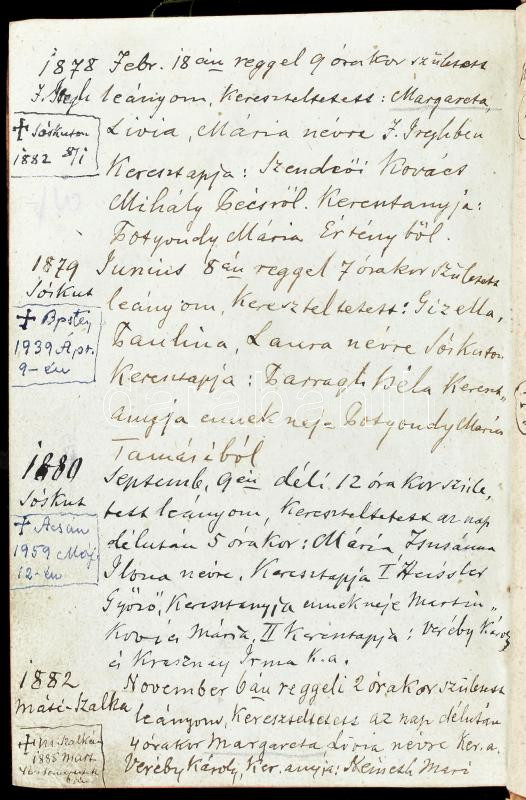 1878 Febr. 18án reggel 9 órakor született
J. Iregh leányom, Kereszteltetett: Margareta,
Livia, Mária névre J. Ireghben
✝ Sóskuton
1882 8/1
Keresztapja: Szendrői Kovács
Mihály Pécsről. Keresztanyja:
Potyondy Mária Értényből.
1879 Junius 8án reggel 7 órakor született
Sóskut
leányom, Kereszteltetett: Gizella,
✝ Bpsten
1939 Ápr.
9-én
Paulina, Laura névre Sóskuton
Keresztapja: Barragh Béla Kereszt„
anyja ennek neje Potyondy Mária
Tamásiból
1880 Septemb. 9én déli 12 órakor szüle„
Sóskut
tett leányom, Kereszteltetett az nap
✝ Acsán
1959 Máj.
12-én
délután 5 órakor: Mária, Zsuzsánna
Ilona névre. Keresztapja I Heissler
Győző, Keresztanyja ennek neje Martin„
Kovics Mária, II Keresztapja: Veréby Károly
és Krasznay Irma k.a.
1882 November 6án reggeli 2 órakor született
Máté-Szalka
leányom, Kereszteltetett az nap délután
4 órakor Margareta Livia névre Ker.a.
✝ M-Szalkán
1885 Mart.
Veréby Károly, Ker.anyja: Németh Mari